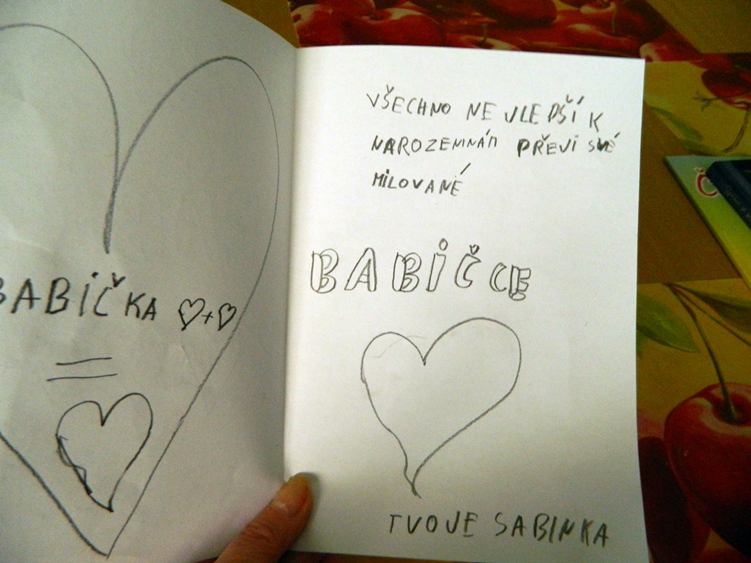 BABIČKA ♡+♡
=
VŠECHNO NEJLEPŠÍ K
NAROZENINÁM PŘEVI SVÉ
MILOVANÉ
BABIČCE
TVOJE SABINKA